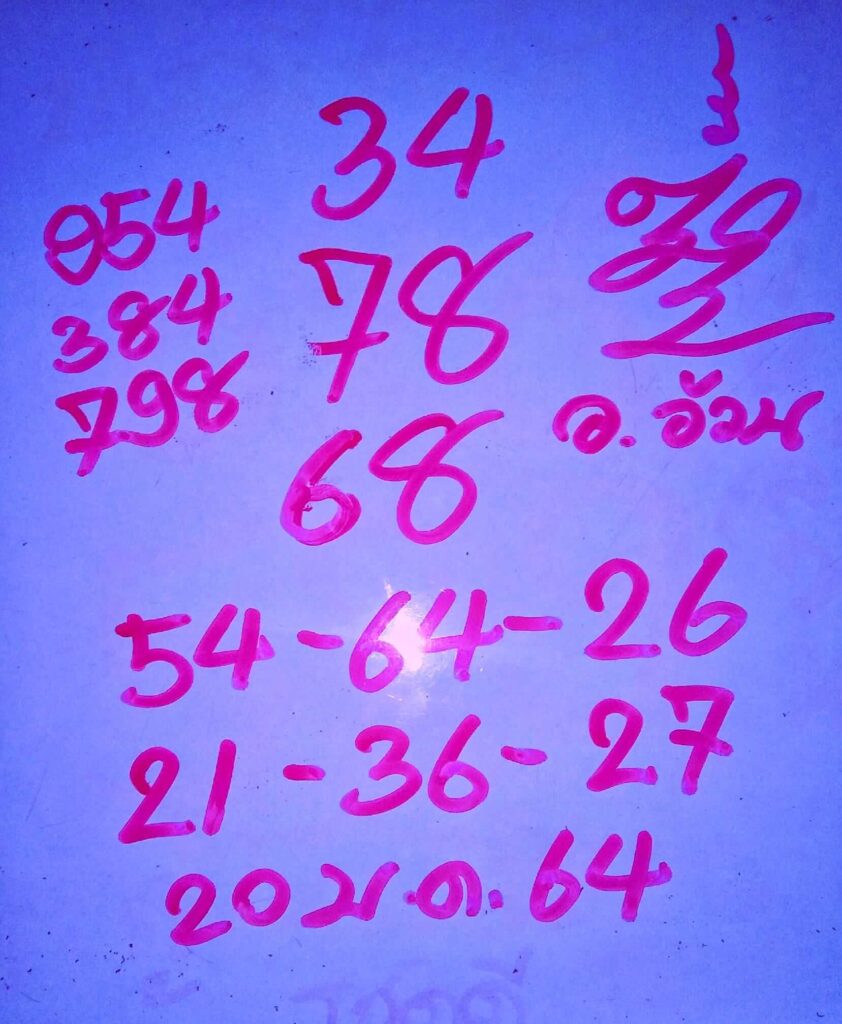 34
954
78
384
798
68
อ. อ้วน
54-64-26
21-36-27
20 ม.ค. 64